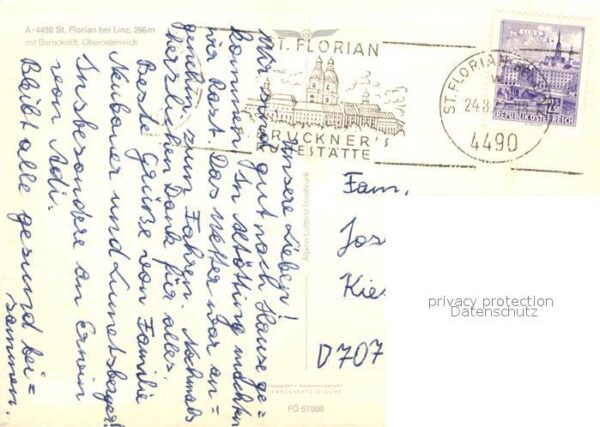 A-4490 St. Florian bei Linz, 296m
mit Barockstift, Oberösterreich
ST. FLORIAN
BRUCKNER'S
RUHESTÄTTE
ST. FLORIAN
24.8.
4490
REPUBLIK ÖSTERREICH
Unsere Lieben!
Wir sind gut nach Hause ge=
kommen. In Altötting machten
wir Rast. Das Wetter war an=
genehm zum Fahren. Nochmals
herzlichen Dank für alles.
Beste Grüße von Familie
Neubauer und Lumetsberger!
Insbesondere an Erwin
von Adi.
Bleibt alle gesund bei=
sammen.
Alpine Luftbild Innsbruck
Fam.
Jos
Kie
D707
FÖ 57000
privacy protection
Datenschutz